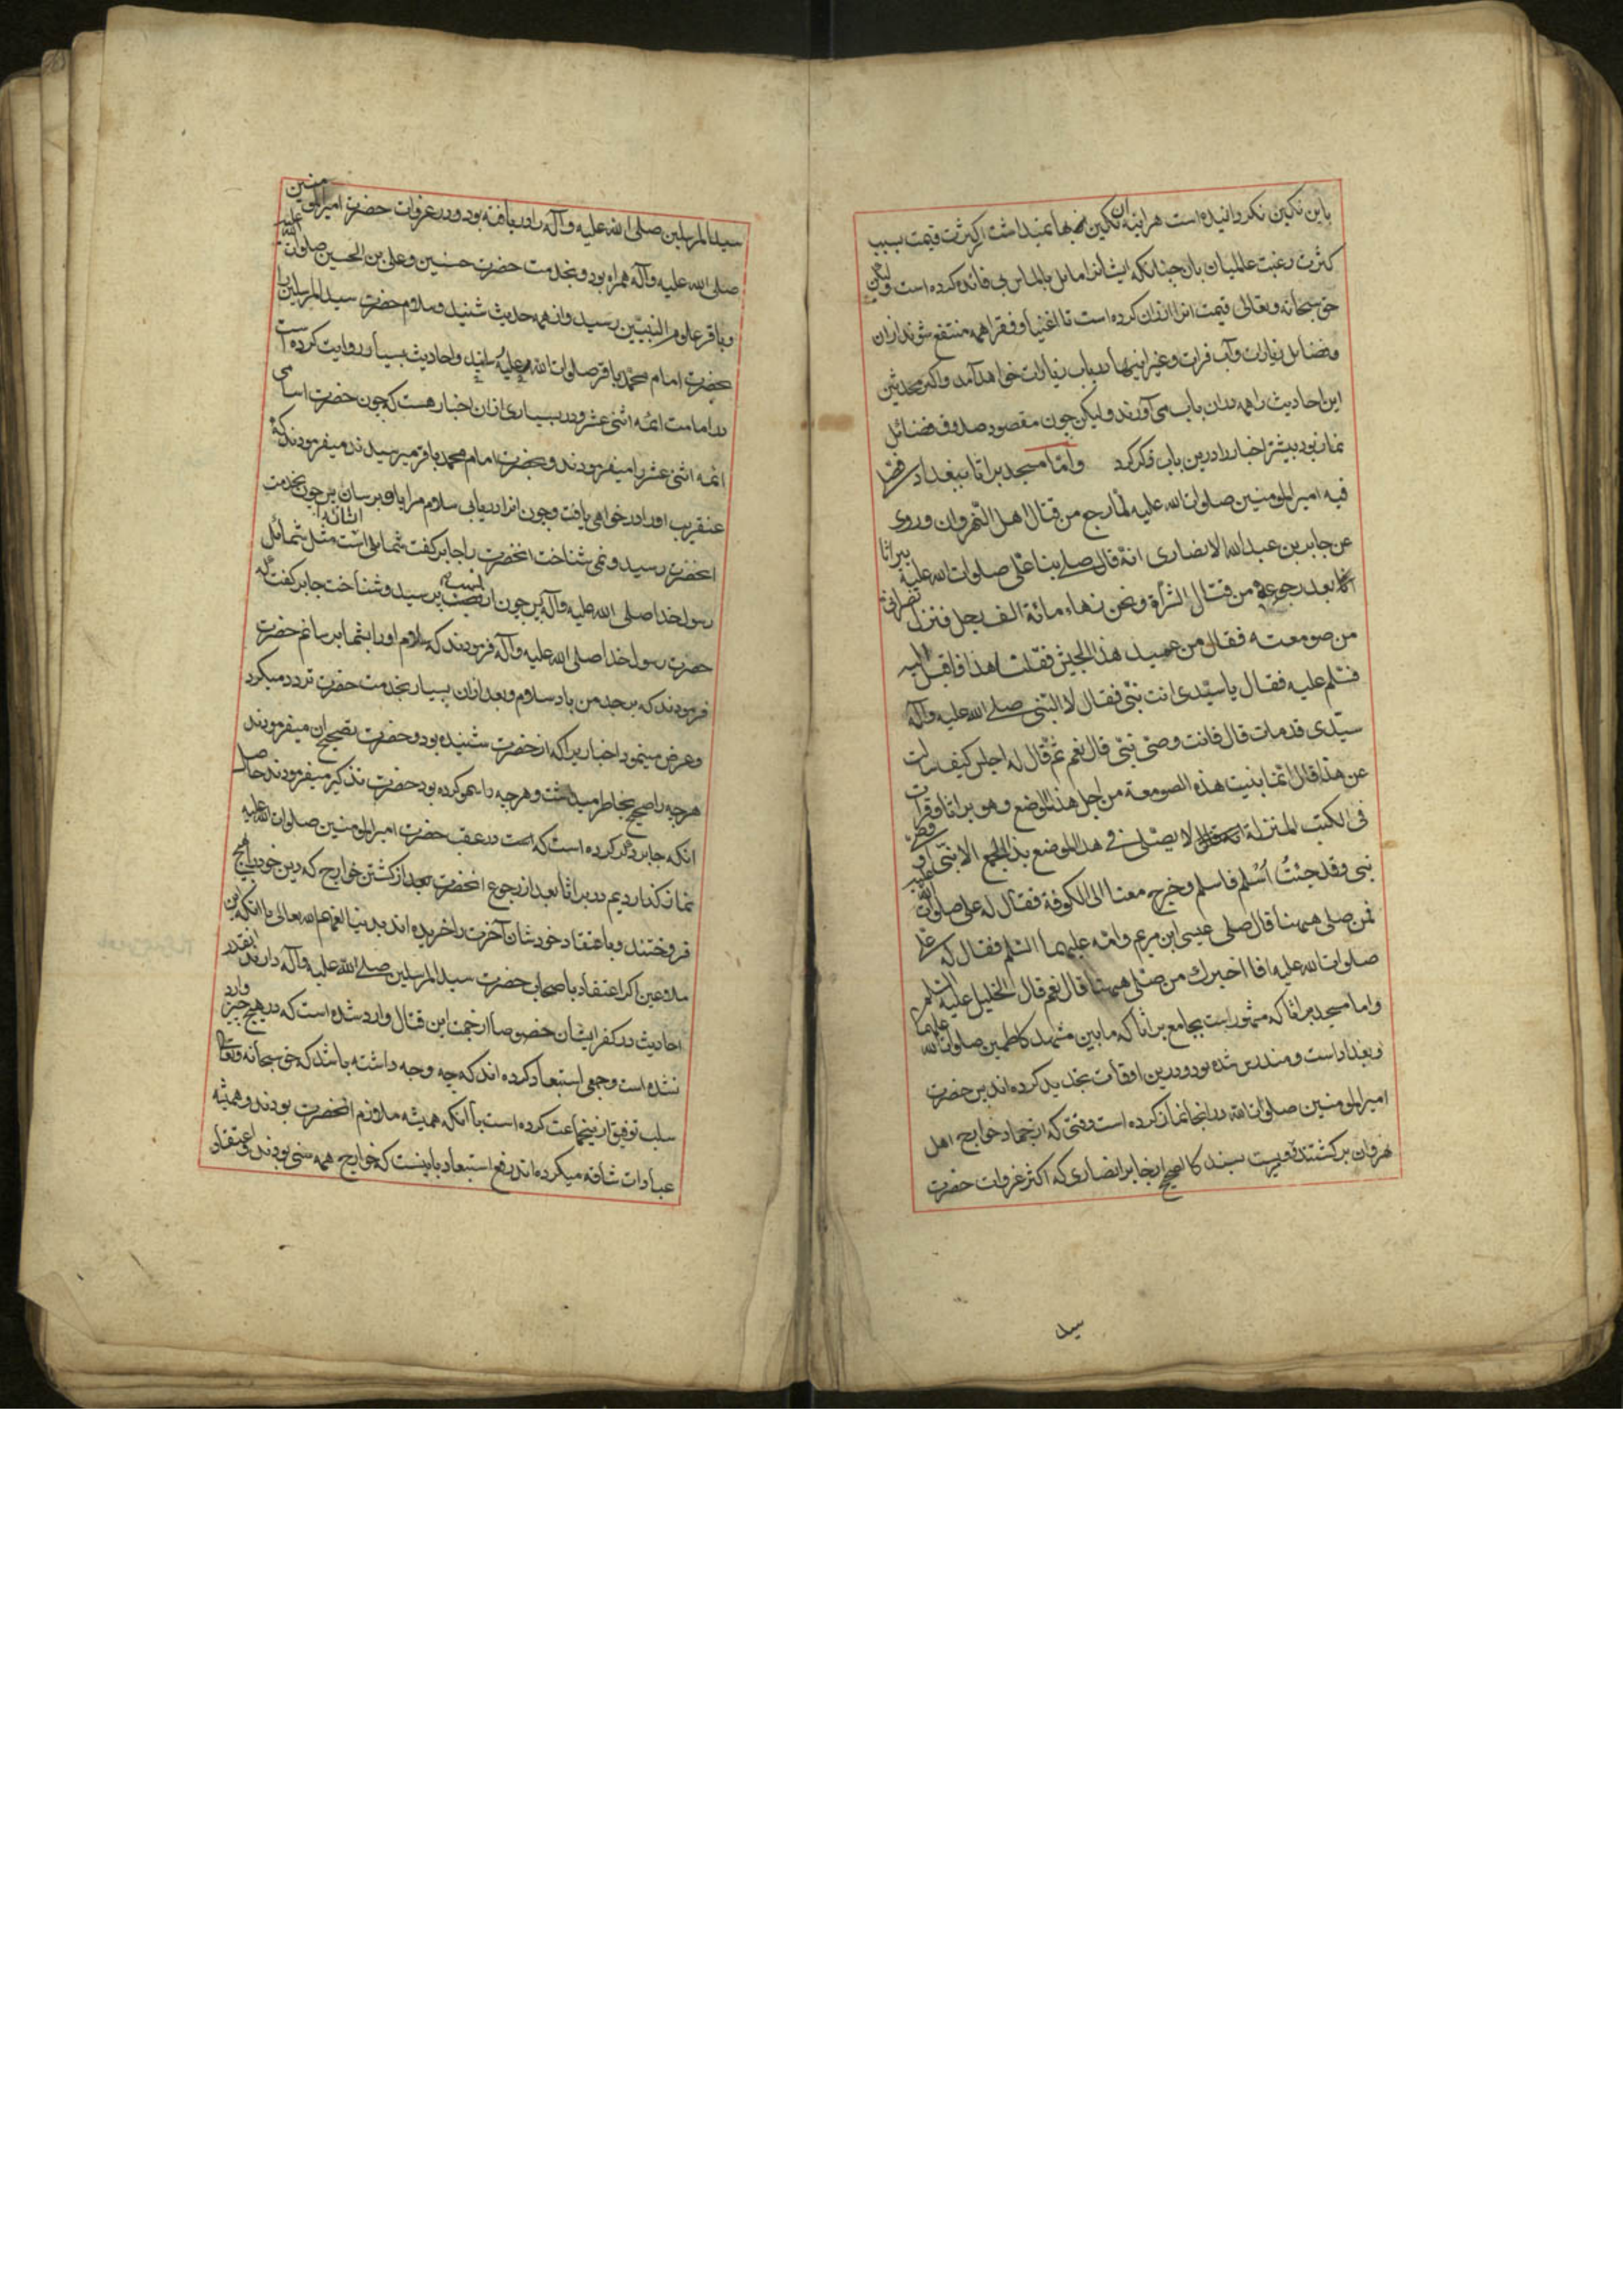 باین نکین نکردانیده است هراینه آن نکین بها نمیداشت از کثرت قیمت بسبب
کثرت رغبت عالمیان بان چنانکه ایشانرا مایل بالماس بی فائده کرده است ولیکن
حق سبحانه وتعالی قیمت انرا ارزان کرده است تا اغنیا وفقرا همه منتفع شوند ازان
وفضایل زیارات وآب فرات وغیر اینها در باب زیارات خواهد آمد واکثر محدثین
این احادیث را همه دران باب می آورند ولیکن چون مقصود صدوق فضائل
نماز بود بیشتر اخبار را درین باب ذکر کرد واما مسجد براثا ببغداد فصلی
فیه امیر المومنین صلوات الله علیه لما رجع من قتال اهل النهروان وروی
عن جابر بن عبدالله الانصاری انه قال صلی بنا علی صلوات الله علیه ببراثا
بعد رجوعه من قتال الشراة ونحن زهاء مائة الف رجل فنزل نصرانی
من صومعته فقال من عمید هذا الجیش فقلنا هذا فاقبل الیه
فسلم علیه فقال یا سیدی انت نبی فقال لا النبی صلی الله علیه وآله
سیدی قد مات قال فانت وصی نبی قال نعم ثم قال له اجلس کیف سالت
عن هذا قال انما بنیت هذه الصومعة من اجل هذا الموضع وهو براثا وقرات
فی الکتب المنزلة انه لا یصلی فی هذا الموضع بذا الجمع الا نبی او وصی
نبی وقد جئت اسلم فاسلم وخرج معنا الی الکوفة فقال له علی صلوات الله علیه
فمن صلی ههنا قال صلی عیسی ابن مریم وامه علیهما السلم فقال له علی
صلوات الله علیه افا اخبرك من صلی ههنا قال نعم قال الخلیل علیه السلم
واما مسجد براثا که مشهور است بجامع براثا که مابین مشهد کاظمین صلوات الله علیهما
وبغداد است ومندرس شده بود ودرین اوقات تجدید کرده اند پس حضرت
امیر المومنین صلوات الله در انجا نماز کرده است وقتی که از جهاد خوارج اهل
نهروان برکشتند ومرویست بسند کالصحیح از جابر انصاری که اکثر غزوات حضرت
سید
سید المرسلین صلی الله علیه وآله را دریافته بود ودر غزوات حضرت امیرالمومنین
صلی الله علیه وآله همراه بود وبخدمت حضرت حسنین وعلی بن الحسین صلوات الله علیهم
وباقر علوم النبیین رسید وازهمه حدیث شنید وسلام حضرت سید المرسلین را
بحضرت امام محمد باقر صلوات الله علیه رسانید واحادیث بسیار روایت کرده است
در امامت ائمه اثنی عشر ودر بسیاری ازان اخبار هست که چون حضرت اسامی
ائمه اثنی عشر را میفرمودند وبحضرت امام محمد باقر میرسیدند میفرمودند که
عنقریب اورا در خواهی یافت وچون انرا دریابی سلام مرا باو برسان پس چون بخدمت
انحضرت رسید ونمی شناخت انحضرت را جابر کفت شمایل است مثل شمائل
رسول خدا صلی الله علیه وآله پس چون از نسب پرسید وشناخت جابر کفت که
حضرت رسول خدا صلی الله علیه وآله فرمودند که سلام اورا بشما برسانم حضرت
فرمودند که بر جد من باد سلام وبعد ازان بسیار بخدمت حضرت تردد میکرد
وعرض مینمود اخباریرا که ازحضرت شنیده بود وحضرت تصحیح ان میفرمودند
هرچه را صحیح بخاطر میداشت وهرچه را سهو کرده بود حضرت تذکیر میفرمودند حاصل
انکه جابر ذکر کرده است که است در عقب حضرت امیر المومنین صلوات الله علیه
نماز کذاردیم در براثا بعد از رجوع انحضرت بعد از کشتن خوارج که دین خود را
فروختند وباعتقاد خودشان آخرت را خریده اند بدنیا لعنهم الله تعالی با انکه این
ملاعین اکر اعتقاد باصحاب حضرت سید المرسلین صلی الله علیه وآله دارند انقدر
احادیث در کفر ایشان خصوصا از جهت این قتال وارد شده است که در هیچ چیز وارد
نشده است وجمعی استبعاد کرده اند که چه وجه داشته باشد که حق سبحانه وتعالی
سلب توفیق ازینجماعت کرده است با انکه همیشه ملازم انحضرت بودند وهمیشه
عبادات شاقه میکرده اند رفع استبعاد باینست که خوارج همه سنی بودند واعتقاد